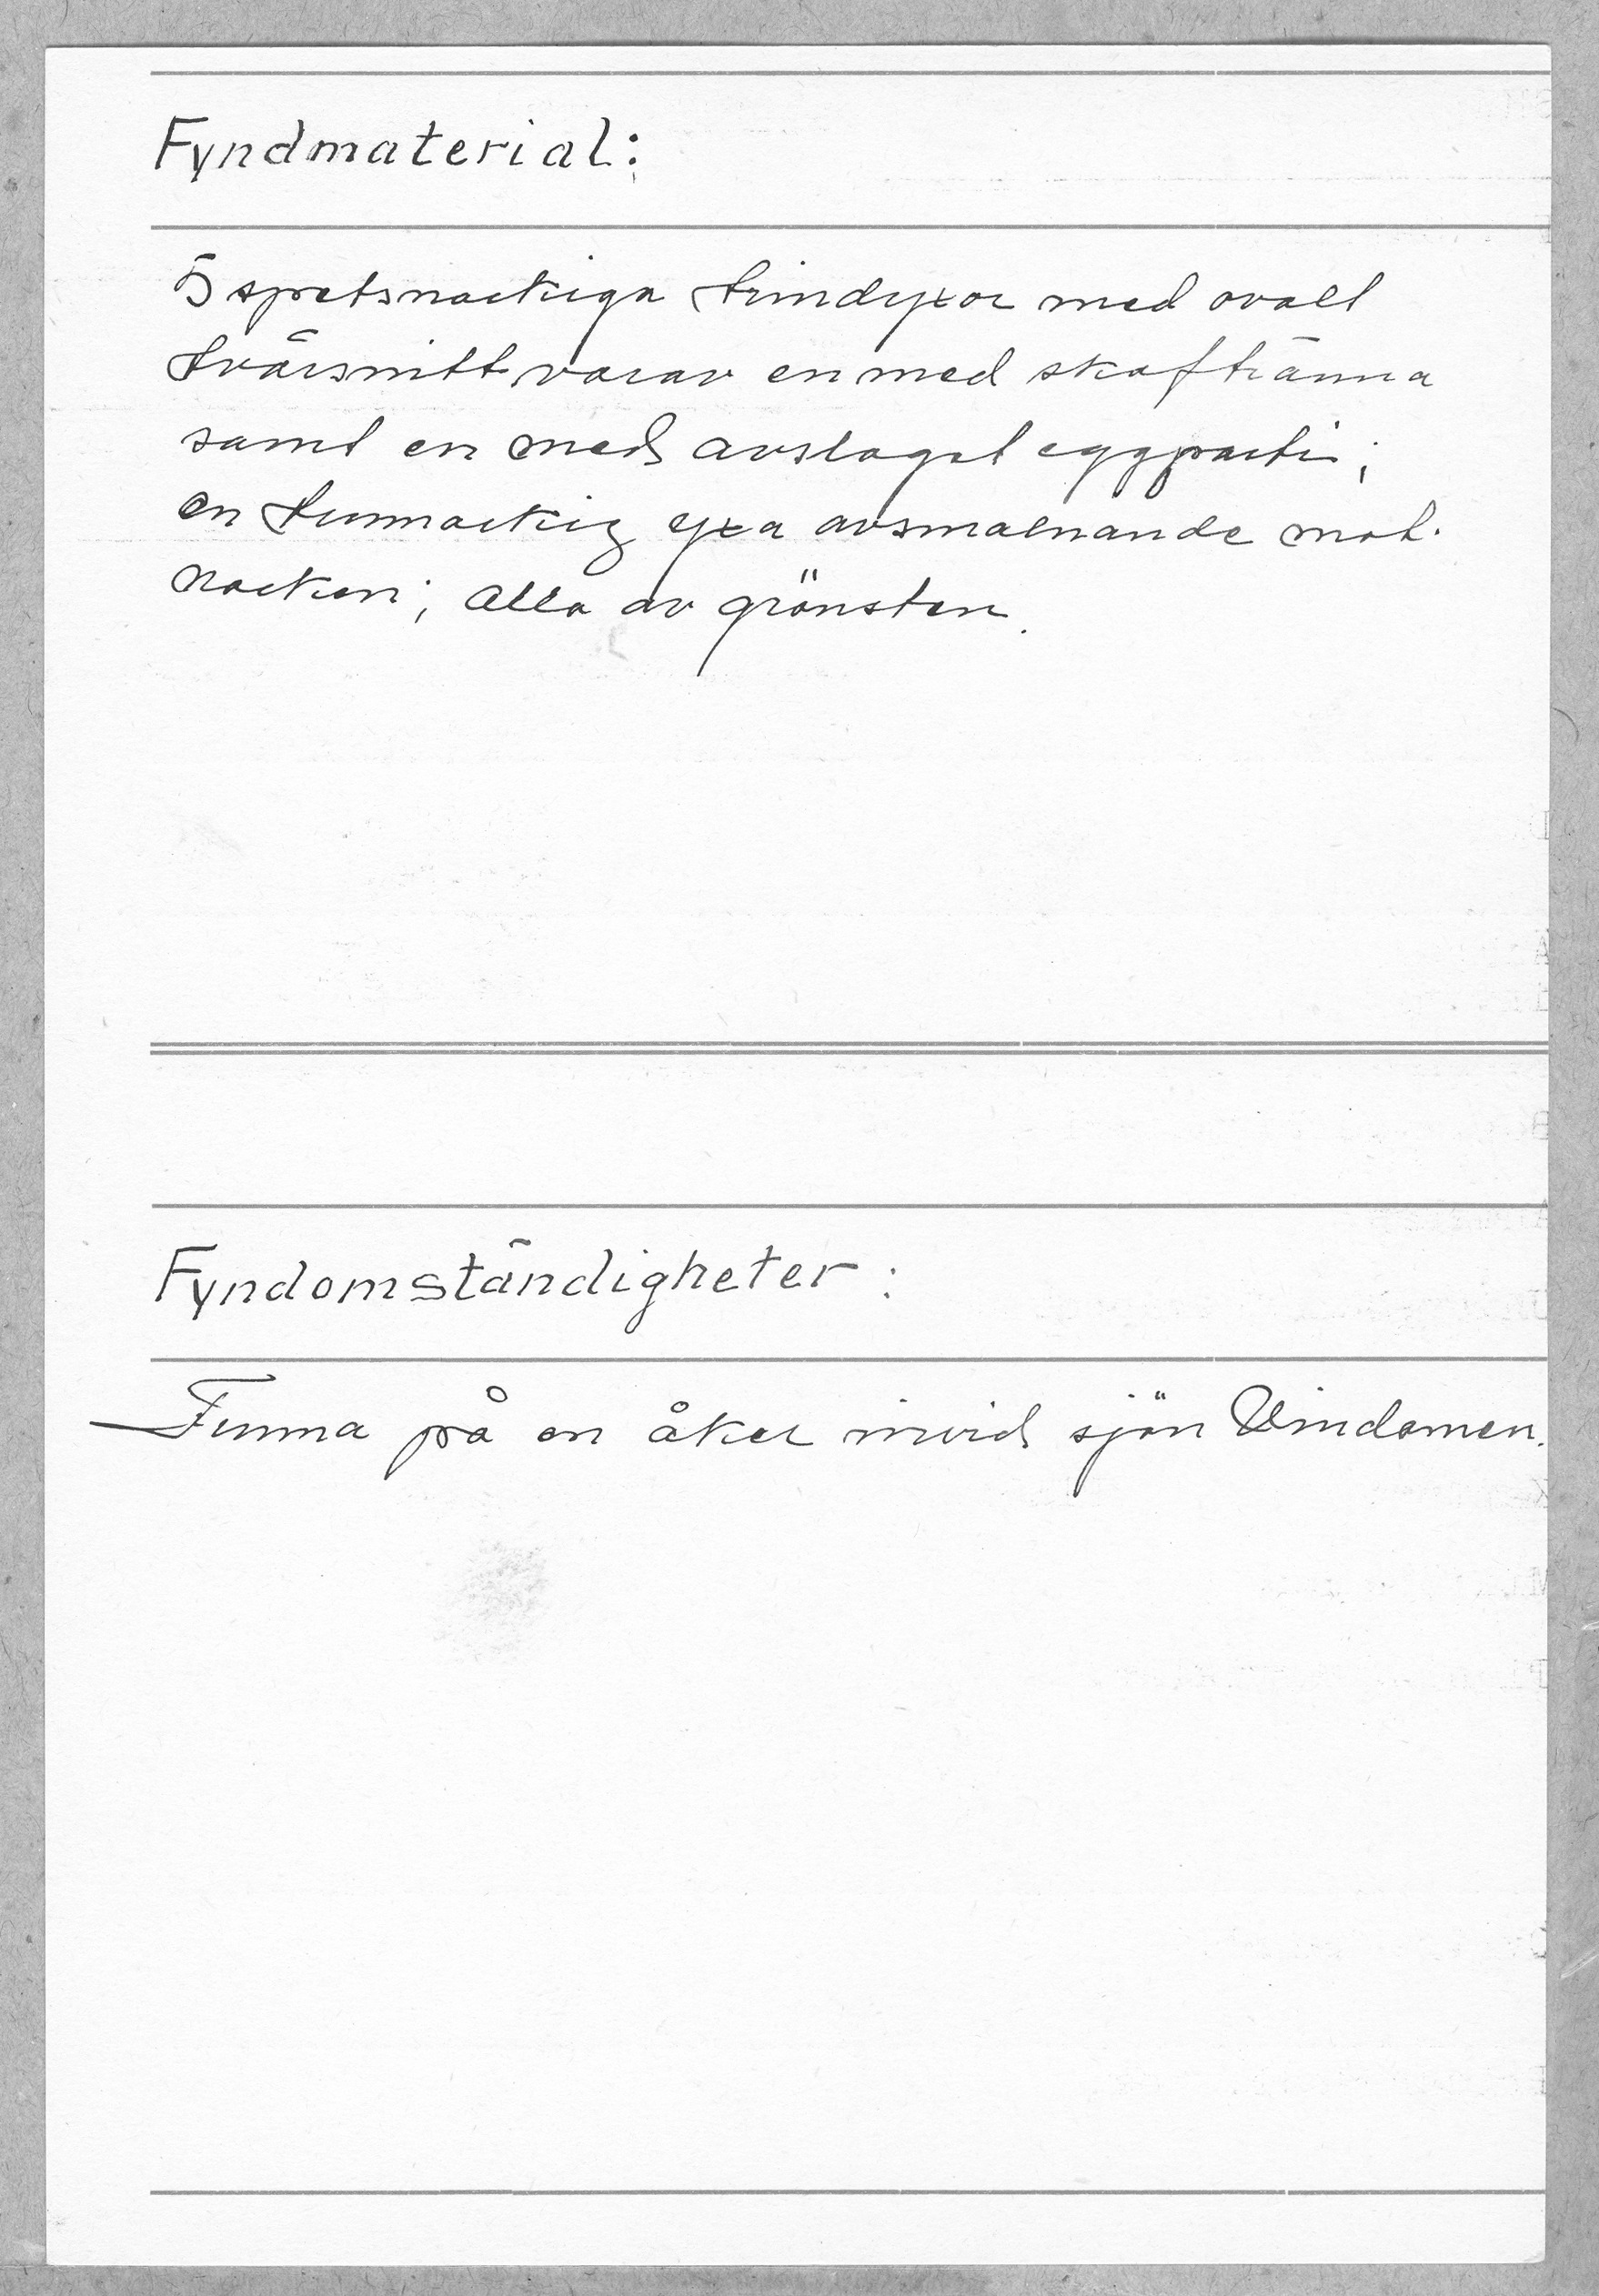 Fyndmaterial:
5 spetsnackiga trindyxor med ovalt
tvärsnitt varav en med skaftränna
samt en med avslaget eggparti;
en tunnackig yxa avsmalnande mot
nacken; alla av grönsten.
Fyndomständigheter:
Funna på en åker invid sjön Vindomen.